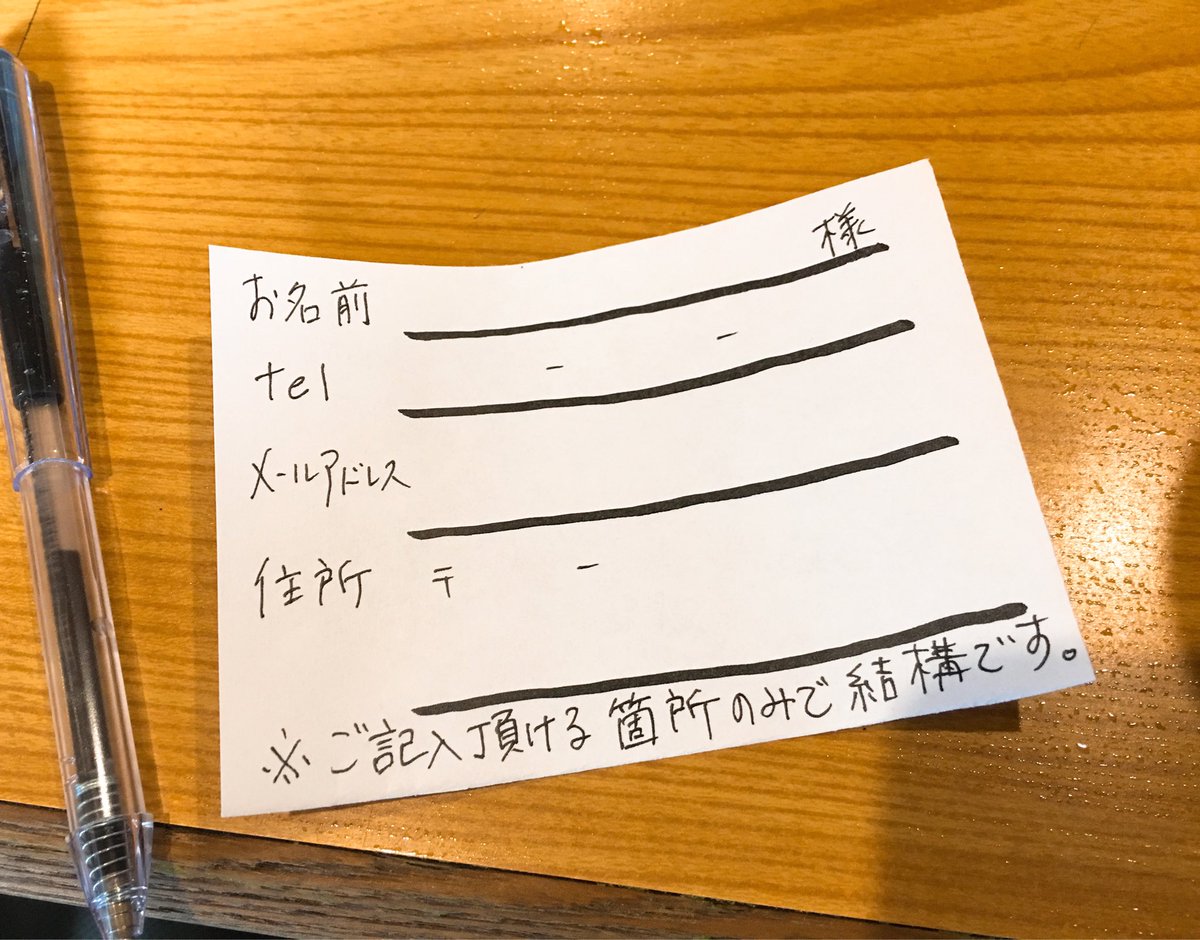 お名前 様
tel - -
メールアドレス
住所 〒 -
※ご記入頂ける箇所のみで結構です。